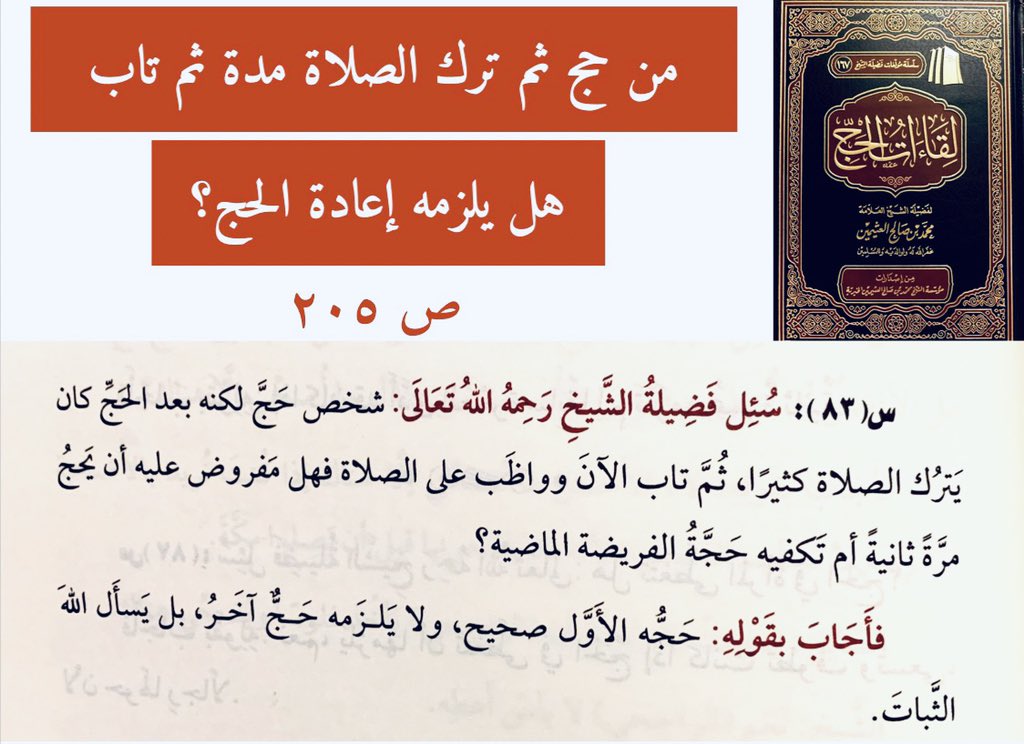 من حج ثم ترك الصلاة مدة ثم تاب
هل يلزمه إعادة الحج؟
ص ٢٠٥
سلسلة مؤلفات فضيلة الشيخ (١٦٧)
لقاءات الحج
لفضيلة الشيخ العلامة
محمد بن صالح العثيمين
غفر الله له ولوالديه وللمسلمين
من إصدارات
مؤسسة الشيخ محمد بن صالح العثيمين الخيرية
س(٨٣): سُئِل فَضِيلةُ الشَّيخِ رَحِمهُ اللهُ تَعَالَى: شخص حَجَّ لكنه بعد الحَجِّ كان
يَترُك الصلاة كثيرًا، ثُمَّ تاب الآنَ وواظَب على الصلاة فهل مَفروض عليه أن يَحجُ
مرَّةً ثانيةً أم تَكفيه حَجَّةُ الفريضة الماضية؟
فأَجَابَ بقَوْلِهِ: حَجُّه الأوَّل صحيح، ولا يَلـزَمه حَـجٌّ آخَـرُ، بل يَسأَل اللهَ
الثَّباتَ.